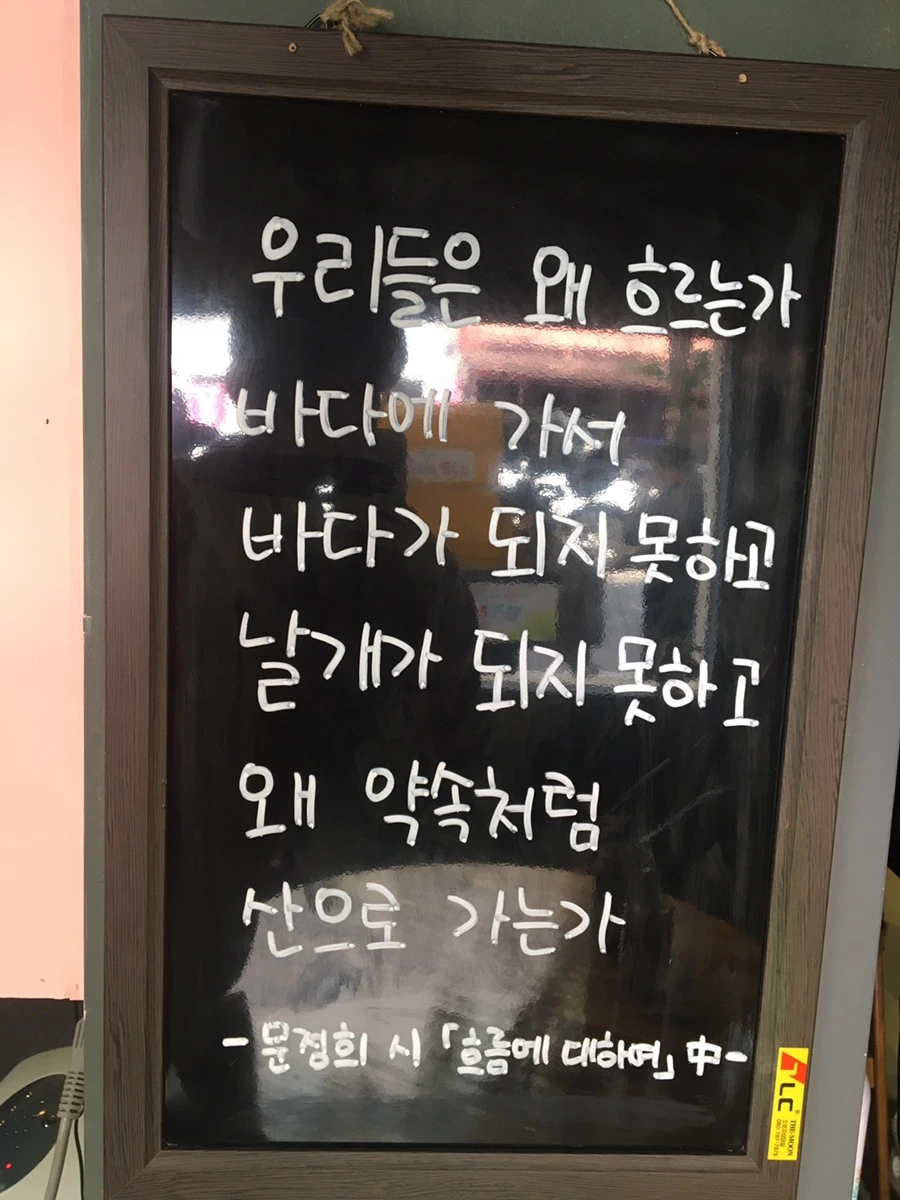 우리들은 왜 흐르는가
바다에 가서
바다가 되지 못하고
날개가 되지 못하고
왜 약속처럼
산으로 가는가
- 문정희 시 「흐름에 대하여」 中 -
LC
THE-MOON